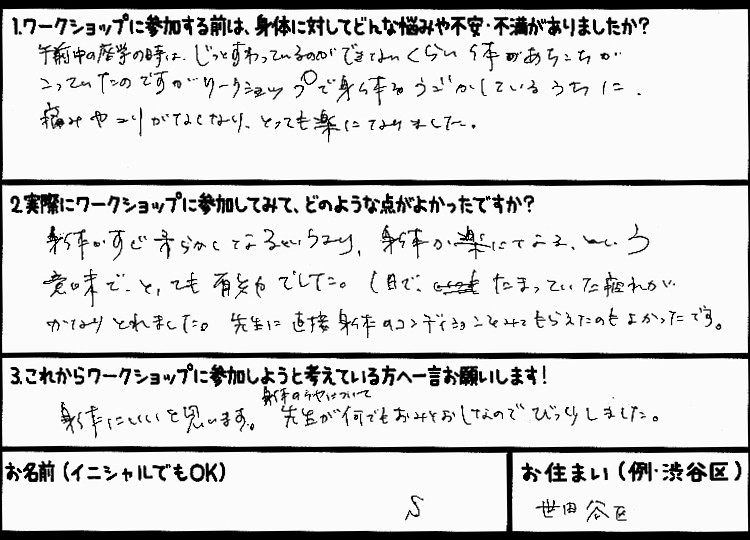 1.ワークショップに参加する前は、身体に対してどんな悩みや不安・不満がありましたか?
午前中の座学の時は、じっとすわっているのができないくらい体があちこちが
こっていたのですがワークショップで身体をうごかしているうちに、
痛みやコリがなくなり、とっても楽になりました。
2.実際にワークショップに参加してみて、どのような点がよかったですか?
身体がすぐ柔らかくなるというより、身体が楽になる、という
意味で、とっても有効でした。1日で、たまっていた疲れが
かなりとれました。先生に直接身体のコンディションをみてもらえたのもよかったです。
3.これからワークショップに参加しようと考えている方へ一言お願いします!
身体にいいと思います。身体の中について先生が何でもおみとおしなのでびっくりしました。
お名前(イニシャルでもOK)
S
お住まい(例・渋谷区)
世田谷区